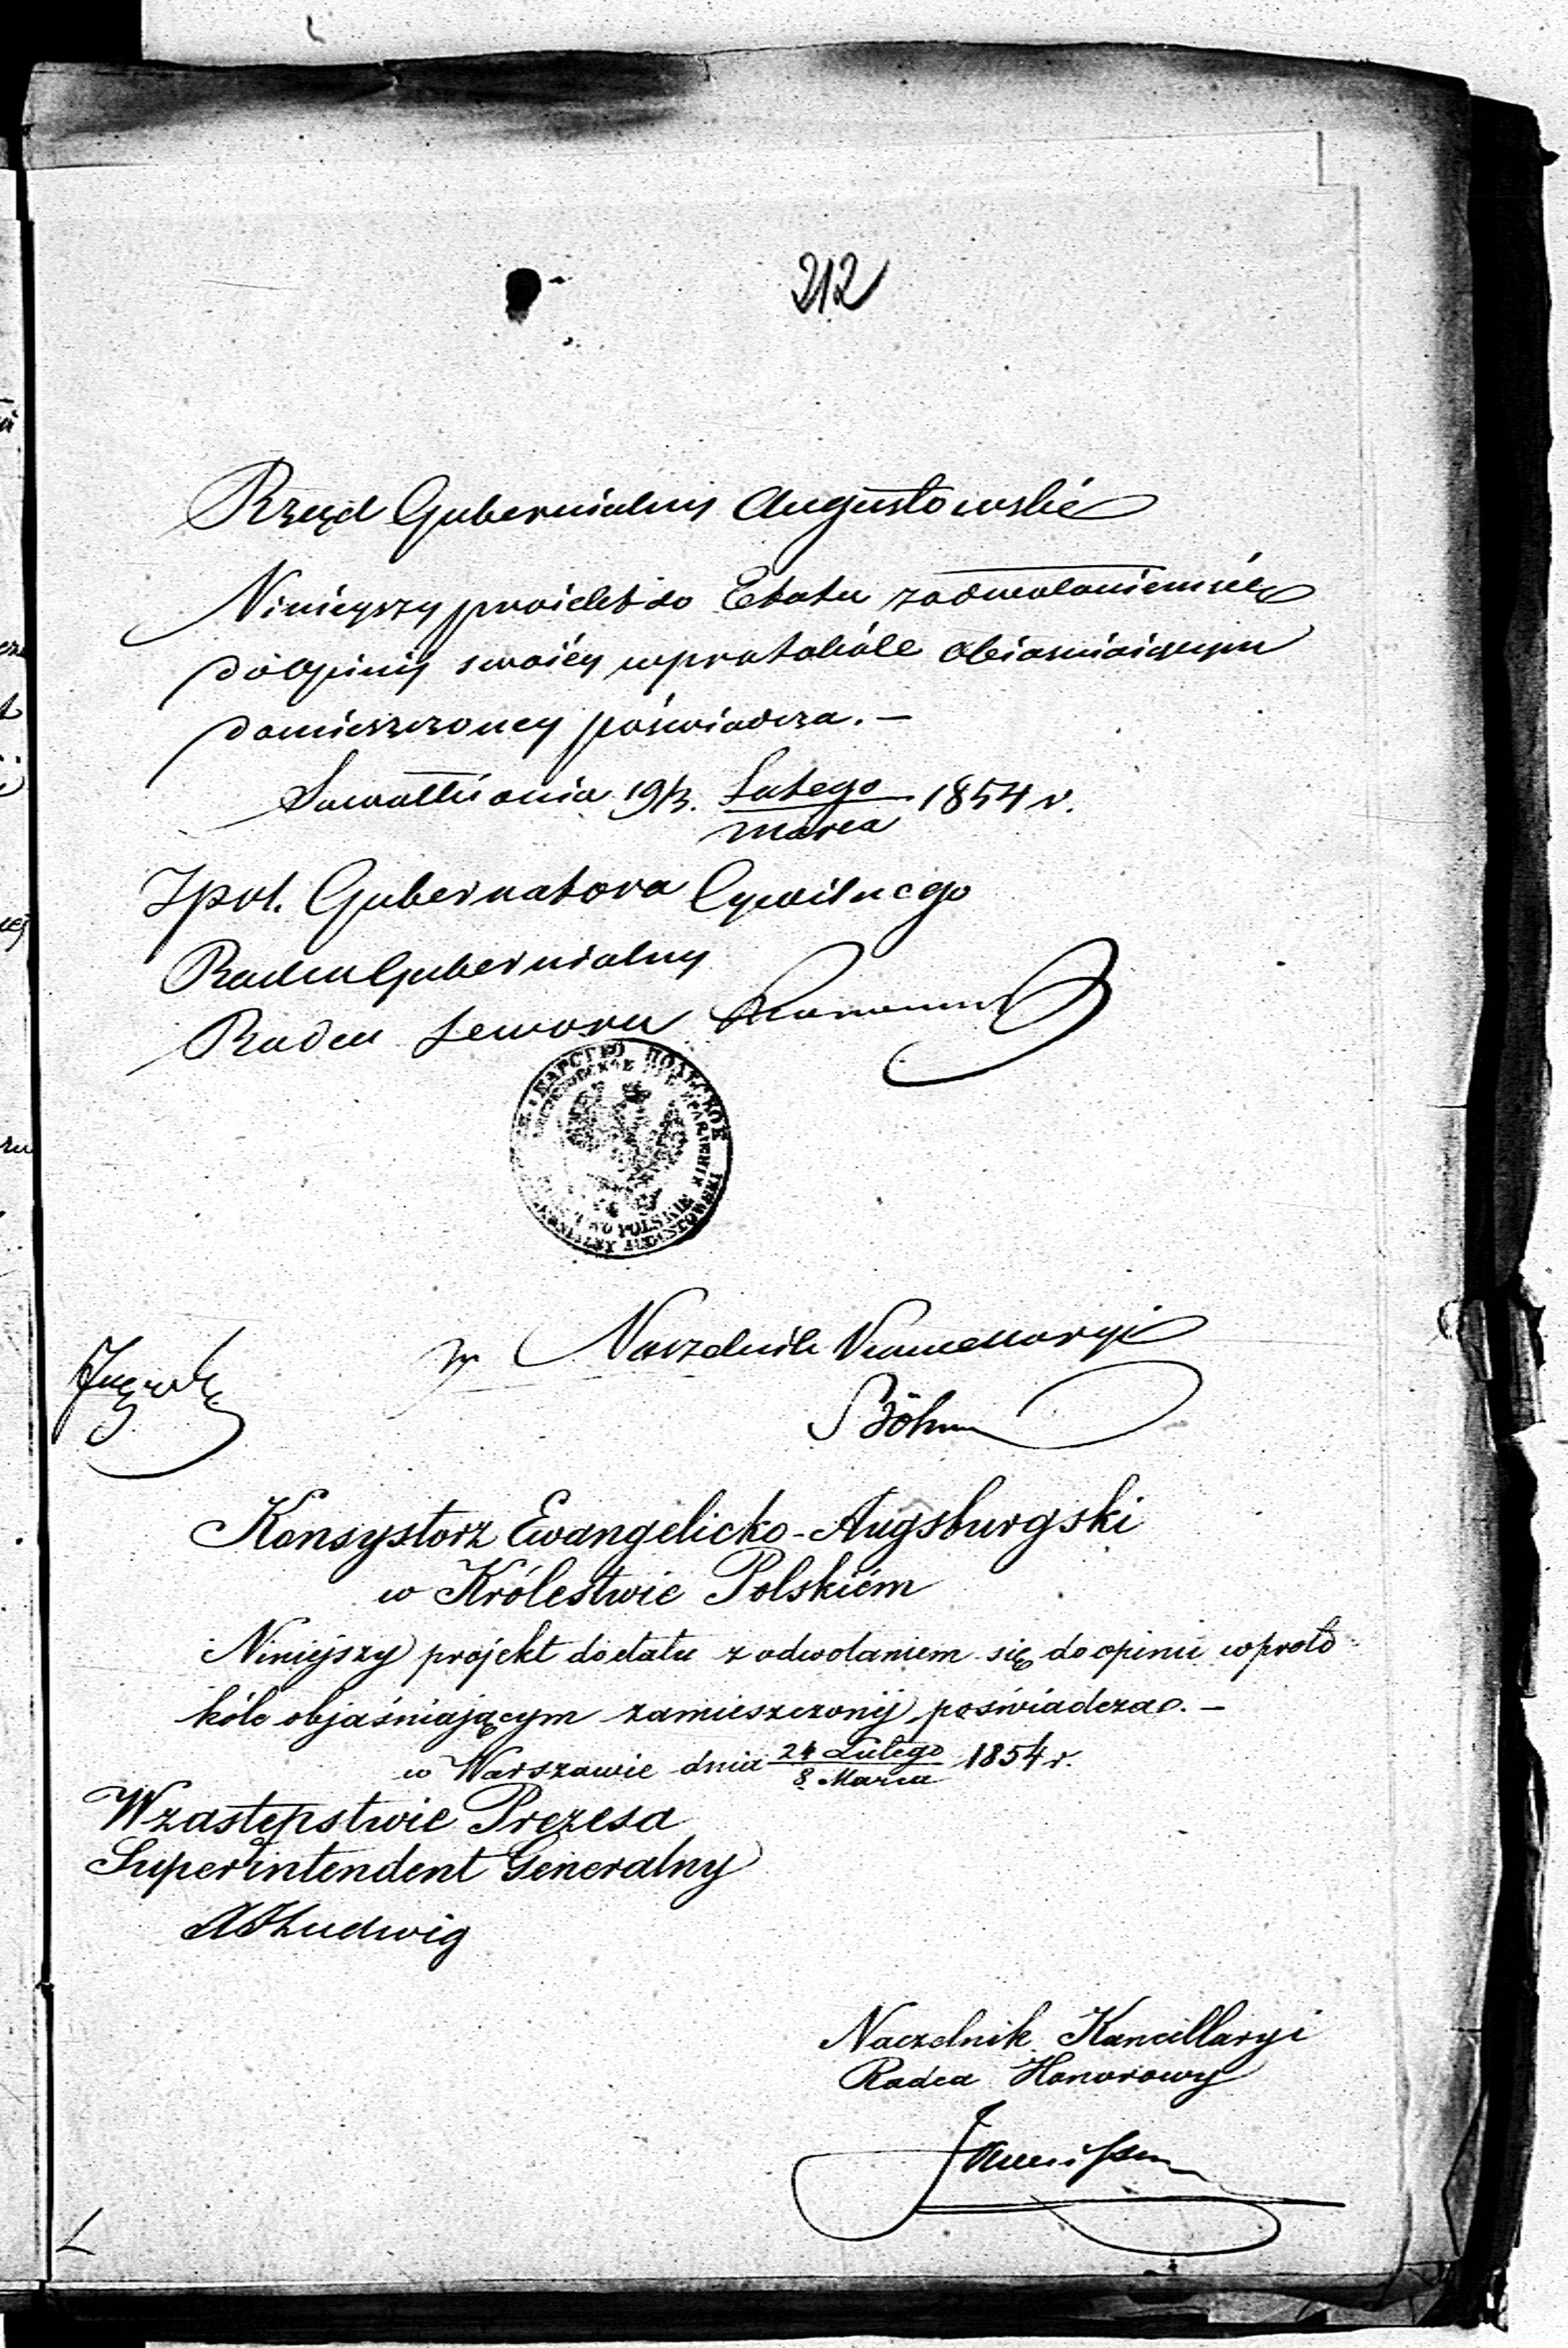 212
Rząd Gubernialny Augustowski
Ninieyszy proiekt do Etatu z odwołaniem się
do opinij swoiéy w protokóle obiaśniaiącym
pomieszczoney poświadcza. —
Suwałki dnia 19/3. Lutego/Marca 1854 r.
Gubernatora Cywilnego
Radca Gubernialny
Radca Dworu
ЦАРСТВО ПОЛЬСКОЕ
POLSKIE
AUGUSTOWSKI
Naczelnik Kancellaryi
Böhm
Konsystorz Ewangelicko-Augsburgski
w Królestwie Polskiém
Niniejszy projekt do etatu z odwołaniem się do opinii w proto
kóle objaśniającym zamieszczonéj, poświadcza. —
w Warszawie dnia 24 Lutego/8 Marca 1854 r.
W zastępstwie Prezesa
Superintendent Generalny
Ludwig
Naczelnik Kancellaryi
Radca Honorowy